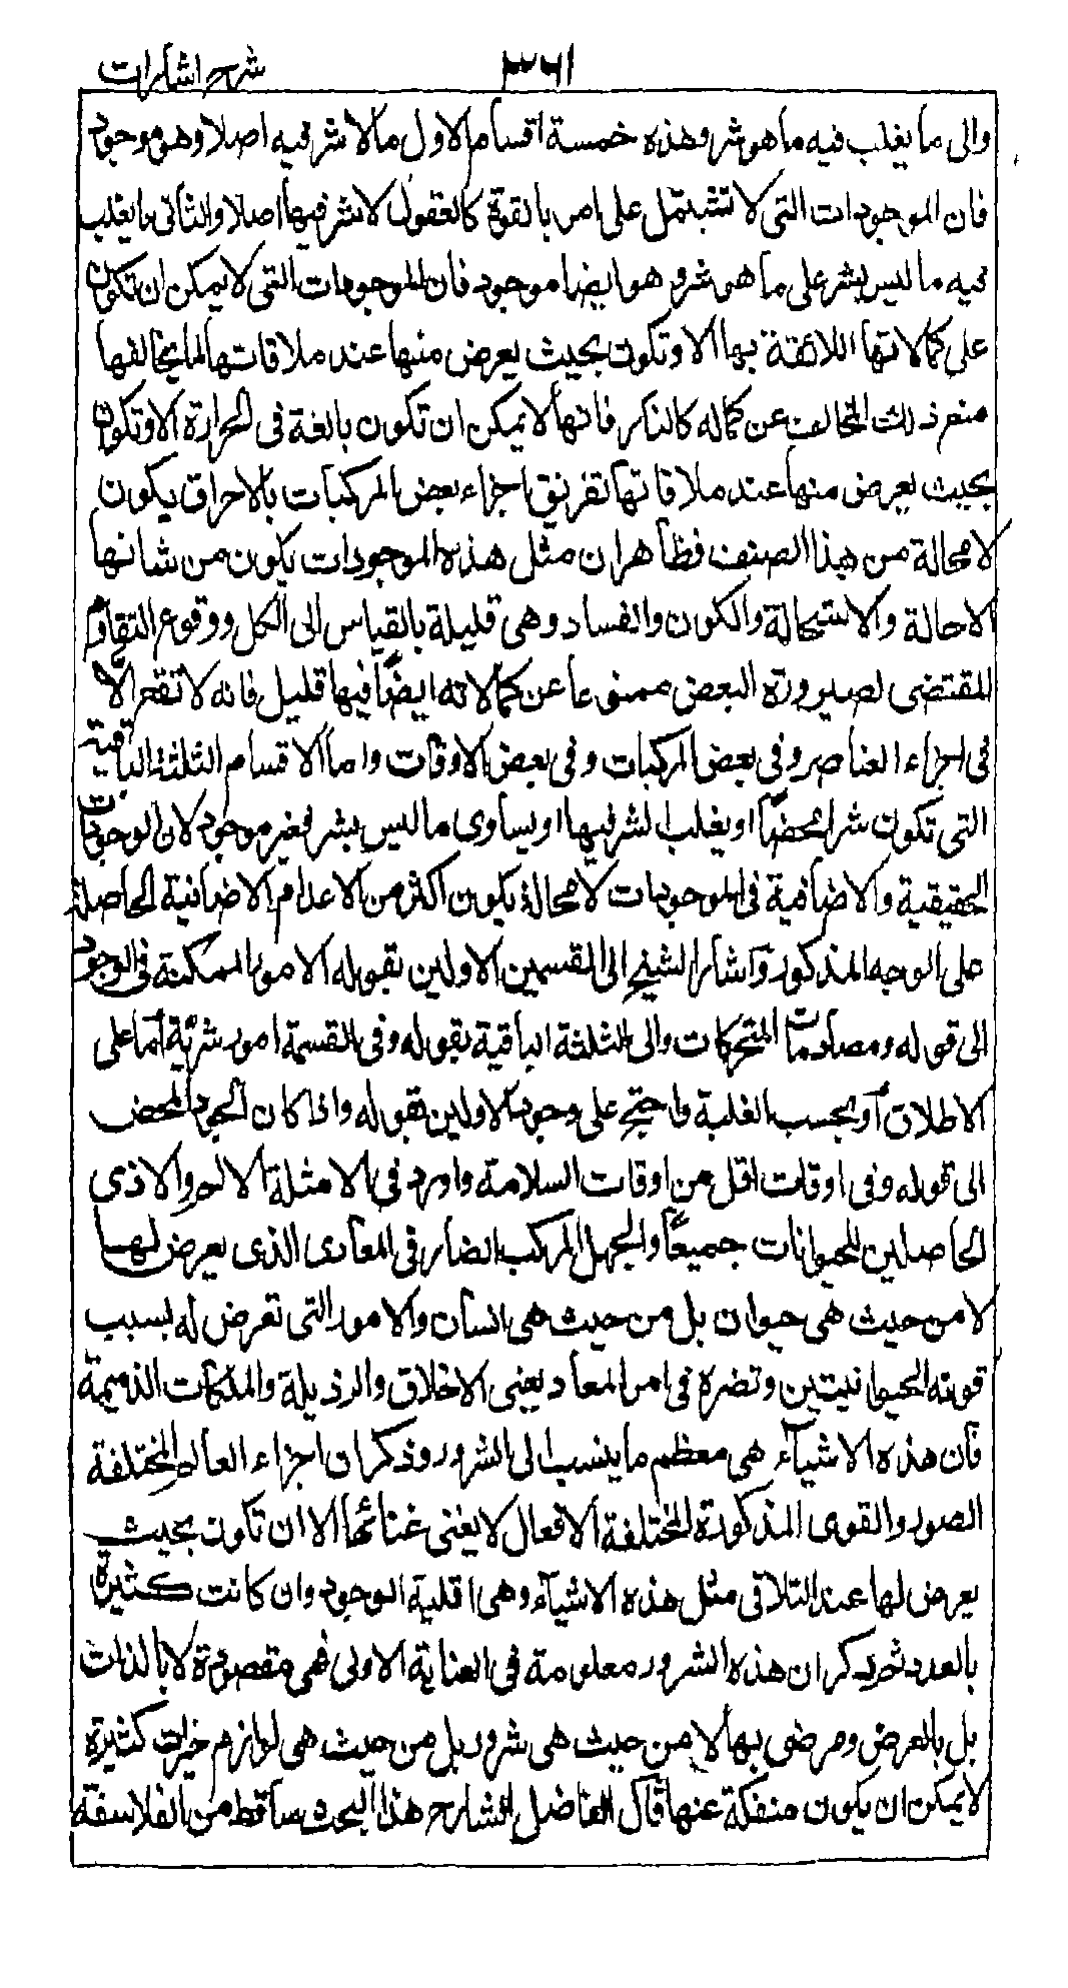 شرح اشارات
٣٦١
والى ما يغلب فيه ما هو شر وهذه خمسة اقسام الاول ما لا شر فيه اصلا وهو موجود
فان الموجودات التى لا تشتمل على امر بالقوة كالعقول لا شر فيها اصلا والثانى ما يغلب
فيه ما ليس بشر على ما هو شر وهو ايضا موجود فان الموجودات التى لا يمكن ان تكون
على كمالاتها اللائقة بها الا وتكون بحيث يعرض منها عند ملاقاتها لما يخالفها
منع ذلك المخالف عن كماله كالنار فانها لا يمكن ان تكون بالغة فى الحرارة الا وتكون
بحيث يعرض منها عند ملاقاتها تفريق اجزاء بعض المركبات بالاحراق يكون
لا محالة من هذا الصنف فظاهر ان مثل هذه الموجودات يكون من شانها
الاحالة والاستحالة والكون والفساد وهى قليلة بالقياس الى الكل ووقوع التقاوم
المقتضى لصيرورة البعض ممنوعا عن كمالاته ايضًا فيها قليل فانه لا تقع الا
فى اجزاء العناصر وفى بعض المركبات وفى بعض الاوقات واما الاقسام الثلثة الباقية
التى تكون شرا محضًا او يغلب الشر فيها او يساوى ما ليس بشر فغير موجود لان الوجودات
الحقيقية والاضافية فى الموجودات لا محالة يكون اكثر من الاعدام الاضافية الحاصلة
على الوجه المذكور واشار الشيخ الى القسمين الاولين بقوله الامور الممكنة فى الوجود
الى قوله ومصادمات المتحركات والى الثلثة الباقية بقوله وفى القسمة امور شرّيّة اما على
الاطلاق او بحسب الغلبة واحتج على وجود الاولين بقوله واذا كان الجود المحض
الى قوله وفى اوقات اقل من اوقات السلامة واورد فى الامثلة الالم والاذى
الحاصلين للحيوانات جميعًا والجهل المركب الضار فى المعاد الذى يعرض لها
لا من حيث هى حيوان بل من حيث هى انسان والامور التى تعرض له بسبب
قوته الحيوانيتين وتضره فى امر المعاد يعنى الاخلاق والرذيلة والملكات الذميمة
فان هذه الاشياء هى معظم ما ينسب الى الشرور وذكر ان اجزاء العالم المختلفة
الصور والقوى المذكورة المختلفة الافعال لا يغنى غنائها الا ان تكون بحيث
يعرض لها عند التلاقى مثل هذه الاشياء وهى اقلية الوجود وان كانت كثيرة
بالعدد ثم ذكر ان هذه الشرور معلومة فى العناية الاولى فهى مقصودة لا بالذات
بل بالعرض ومرضى بها لا من حيث هى شرور بل من حيث هى لوازم خيرات كثيرة
لا يمكن ان يكون منفكة عنها قال الفاضل الشارح هذا البحث ساقط من الفلاسفة